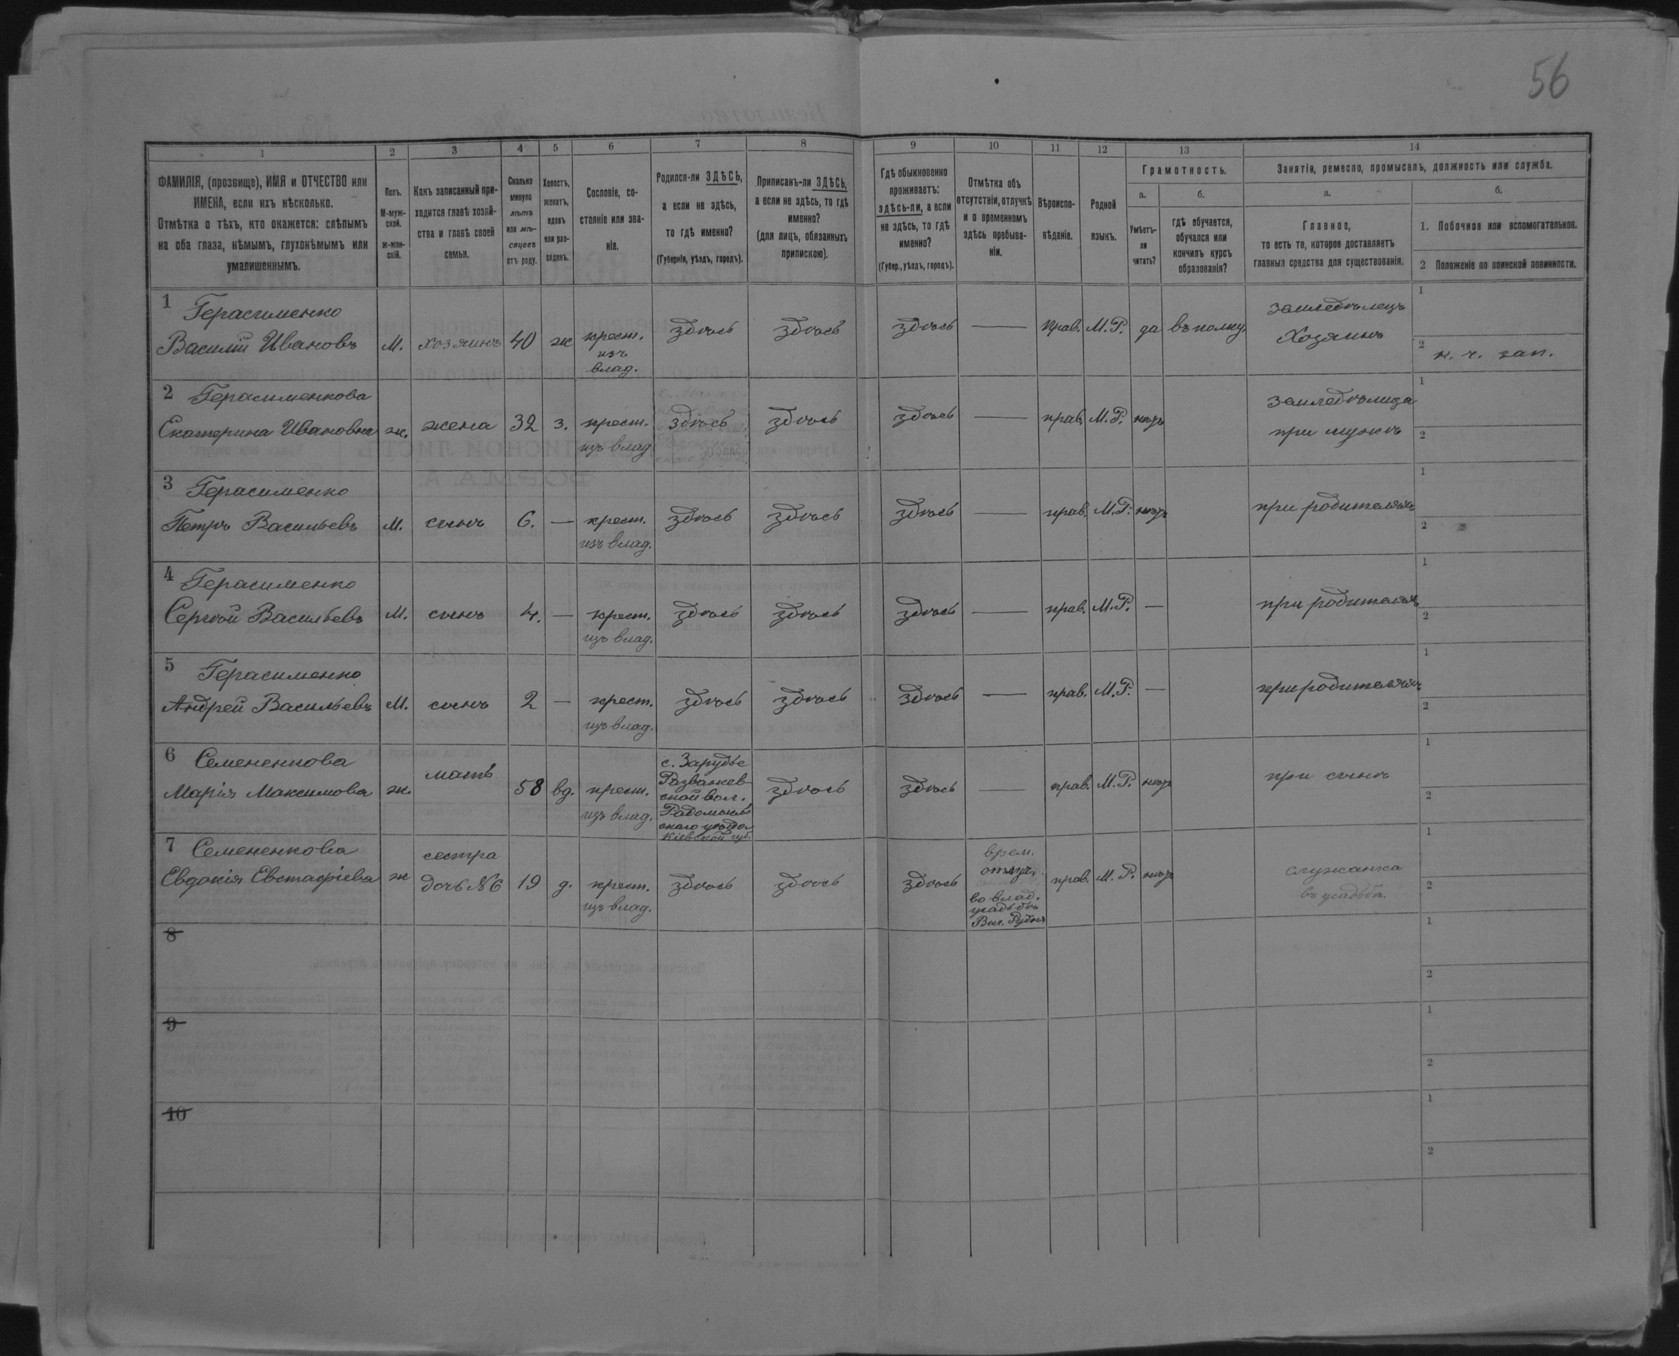 56
1 2 3 4 5 6 7 8 9 10 11 12 13 14
ФАМИЛІЯ, (прозвище), ИМЯ и ОТЧЕСТВО или
ИМЕНА, если ихъ нѣсколько.
Отмѣтка о тѣхъ, кто окажется: слѣпымъ
на оба глаза, нѣмымъ, глухонѣмымъ или
умалишеннымъ.
Полъ.
М-муж-
ской.
ж-жен-
скій.
Какъ записанный при-
ходится главѣ хозяй-
ства и главѣ своей
семьи.
Сколько
минуло
лѣтъ
или мѣ-
сяцевъ
отъ роду.
Холостъ,
женатъ,
вдовъ
или раз-
веденъ.
Сословіе, со-
стояніе или зва-
ніе.
Родился-ли ЗДѢСЬ,
а если не здѣсь,
то гдѣ именно?
(Губернія, уѣздъ, городъ).
Приписанъ-ли ЗДѢСЬ,
а если не здѣсь, то гдѣ
именно?
(для лицъ, обязанныхъ
припискою).
Гдѣ обыкновенно
проживаетъ:
здѣсь-ли, а если
не здѣсь, то гдѣ
именно?
(Губер., уѣздъ, городъ).
Отмѣтка объ
отсутствіи, отлучкѣ
и о временномъ
здѣсь пребыва-
ніи.
Вѣроиспо-
вѣданіе.
Родной
языкъ.
Грамотность.
а.
Умѣетъ-
ли
читать?
б.
гдѣ обучается,
обучался или
кончилъ курсъ
образованія?
Занятія, ремесло, промыселъ, должность или служба.
а.
Главное,
то есть то, которое доставляетъ
главныя средства для существованія.
б.
1. Побочное или вспомогательное.
2 Положеніе по воинской повинности.
1 Герасименко земледѣлецъ 1
Василій Ивановъ М. хозяинъ 40 ж крест. здѣсь здѣсь здѣсь — прав. М.Р. да въ полку Хозяинъ
изъ 2 н. ч. зап.
влад.
2 Герасименкова земледѣлица 1
Екатерина Ивановна ж. жена 32 з. крест. здѣсь здѣсь здѣсь — прав. М.Р. нѣтъ при мужѣ 2
изъ влад.
3 Герасименко 1
Петръ Васильевъ М. сынъ 6. — крест. здѣсь здѣсь здѣсь — прав. М.Р. нѣтъ при родителяхъ 2
изъ влад.
4 Герасименко 1
Сергѣй Васильевъ М. сынъ 4. — крест. здѣсь здѣсь здѣсь — прав. М.Р. — при родителяхъ 2
изъ влад.
5 Герасименко 1
Андрей Васильевъ М. сынъ 2 — крест. здѣсь здѣсь здѣсь — прав. М.Р. — при родителяхъ 2
изъ влад.
6 Семененкова с. Зарудье 1
Марія Максимова ж. мать 58 вд. крест. здѣсь здѣсь — прав. М.Р. нѣтъ при сынѣ 2
изъ влад.
Розважев-
ской вол.
Радомысль-
скаго уѣзда
Кіевской губ.
7 Семененкова сестра врем. 1
Евдокія Евстафіева ж дочь №6 19 д. крест. здѣсь здѣсь здѣсь отлуч. прав. М.Р. нѣтъ служанка 2
изъ влад. въ усадьбѣ.
во влад.
усадьбѣ
8 1
2
9 1
2
10 1
2